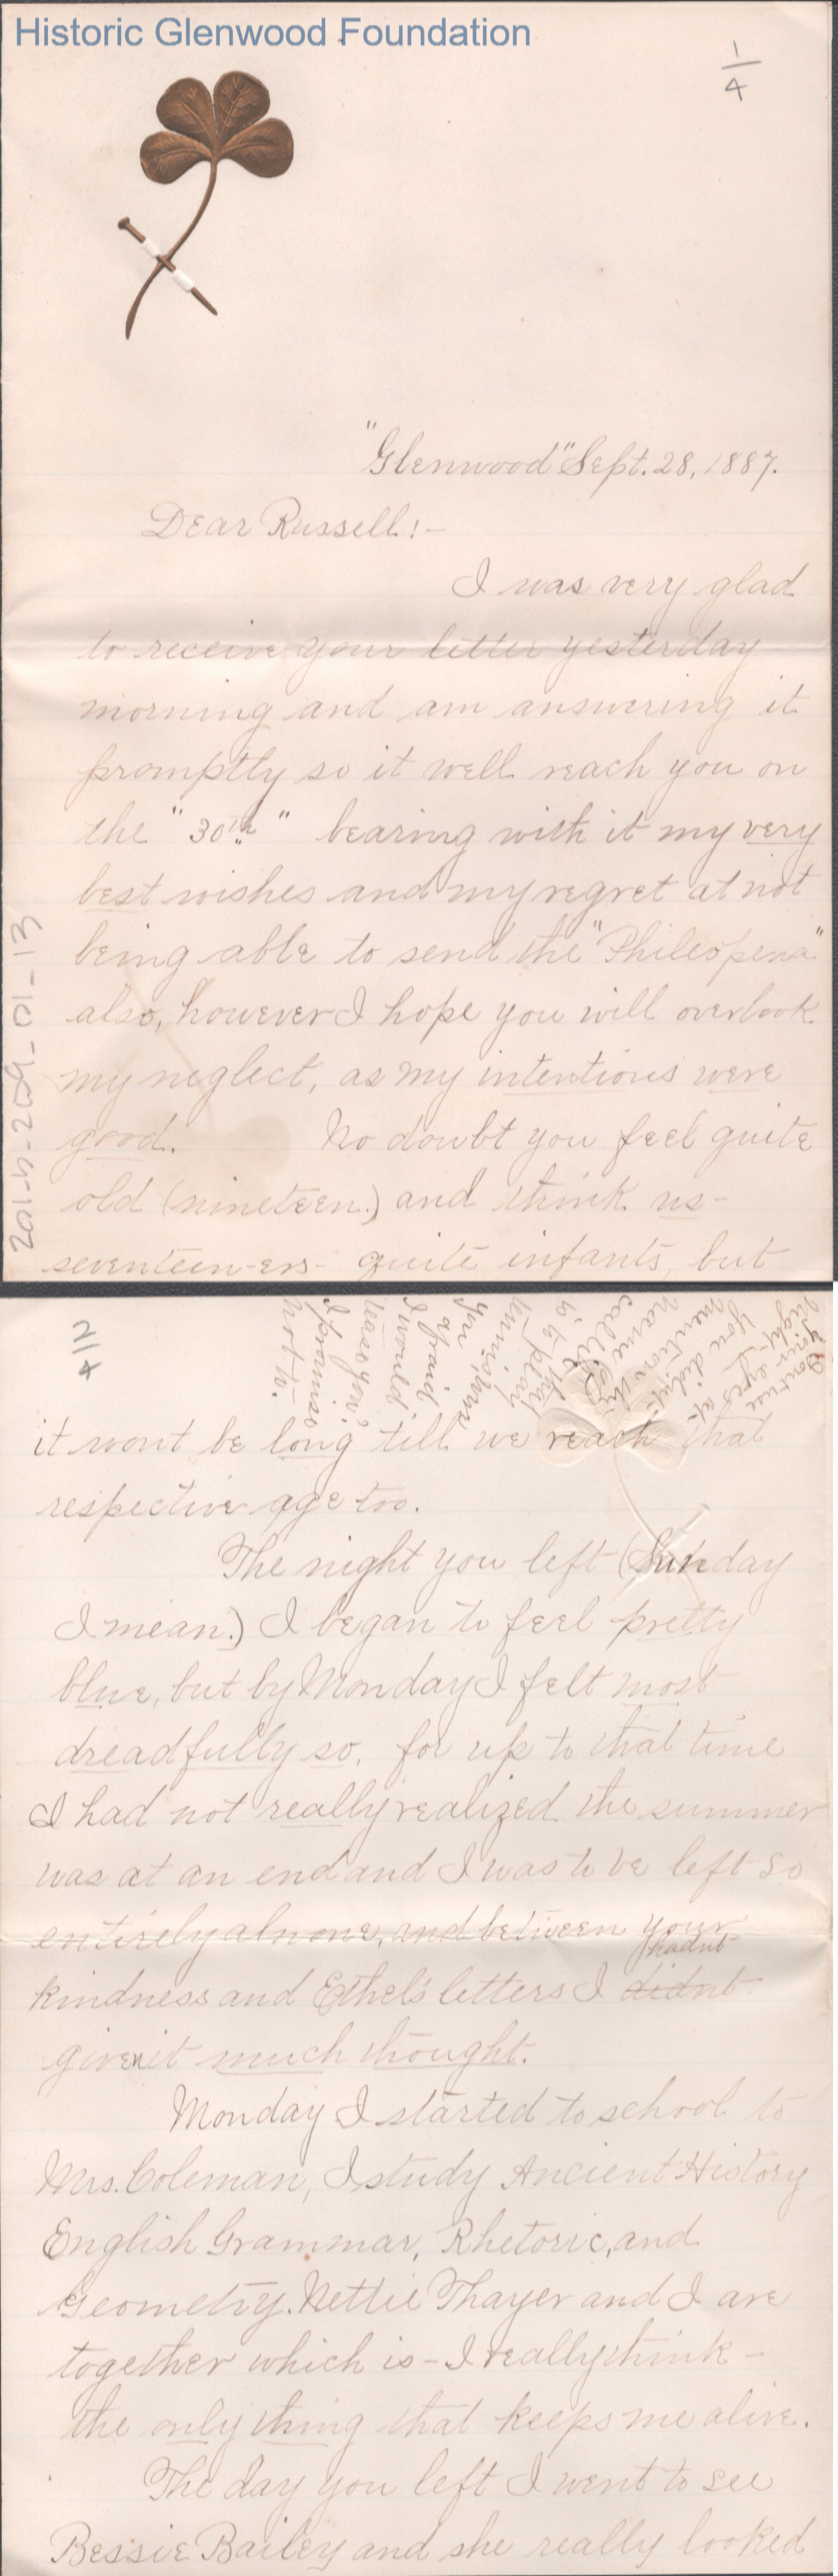 Historic Glenwood Foundation
1/4
"Glenwood" Sept. 28, 1887.
Dear Russell!-
I was very glad
to receive your letter yesterday
morning and am answering it
promptly so it well reach you on
the "30th" bearing with it my very
best wishes and my regret at not
being able to send the "Phileopena"
also, however I hope you will overlook
my neglect, as my intentions were
good. No doubt you feel quite
old (nineteen.) and think us-
seventeen-ers- quite infants, but
2015-209-01-13
2/4
Dont use
your eyes at
night-I
you didnt
mention the
name
calls
is to play
tennis,
you afraid
I would
tease you?
I promise
not to.
it wont be long till we reach that
respective age too.
The night you left (Sunday
I mean.) I began to feel pretty
blue, but by Monday I felt most
dreadfully so, for up to that time
I had not really realized the summer
was at an end and I was to be left so
entirely alnone, and between your
hadnt
kindness and Ethel's letters I didnt
given it much thought.
Monday I started to school to
Mrs. Coleman, I study Ancient History
English Grammar, Rhetoric, and
Geometry. Nettie Thayer and I are
together which is - I really think -
the only thing that keeps me alive.
The day you left I went to see
Bessie Bailey and she really looked